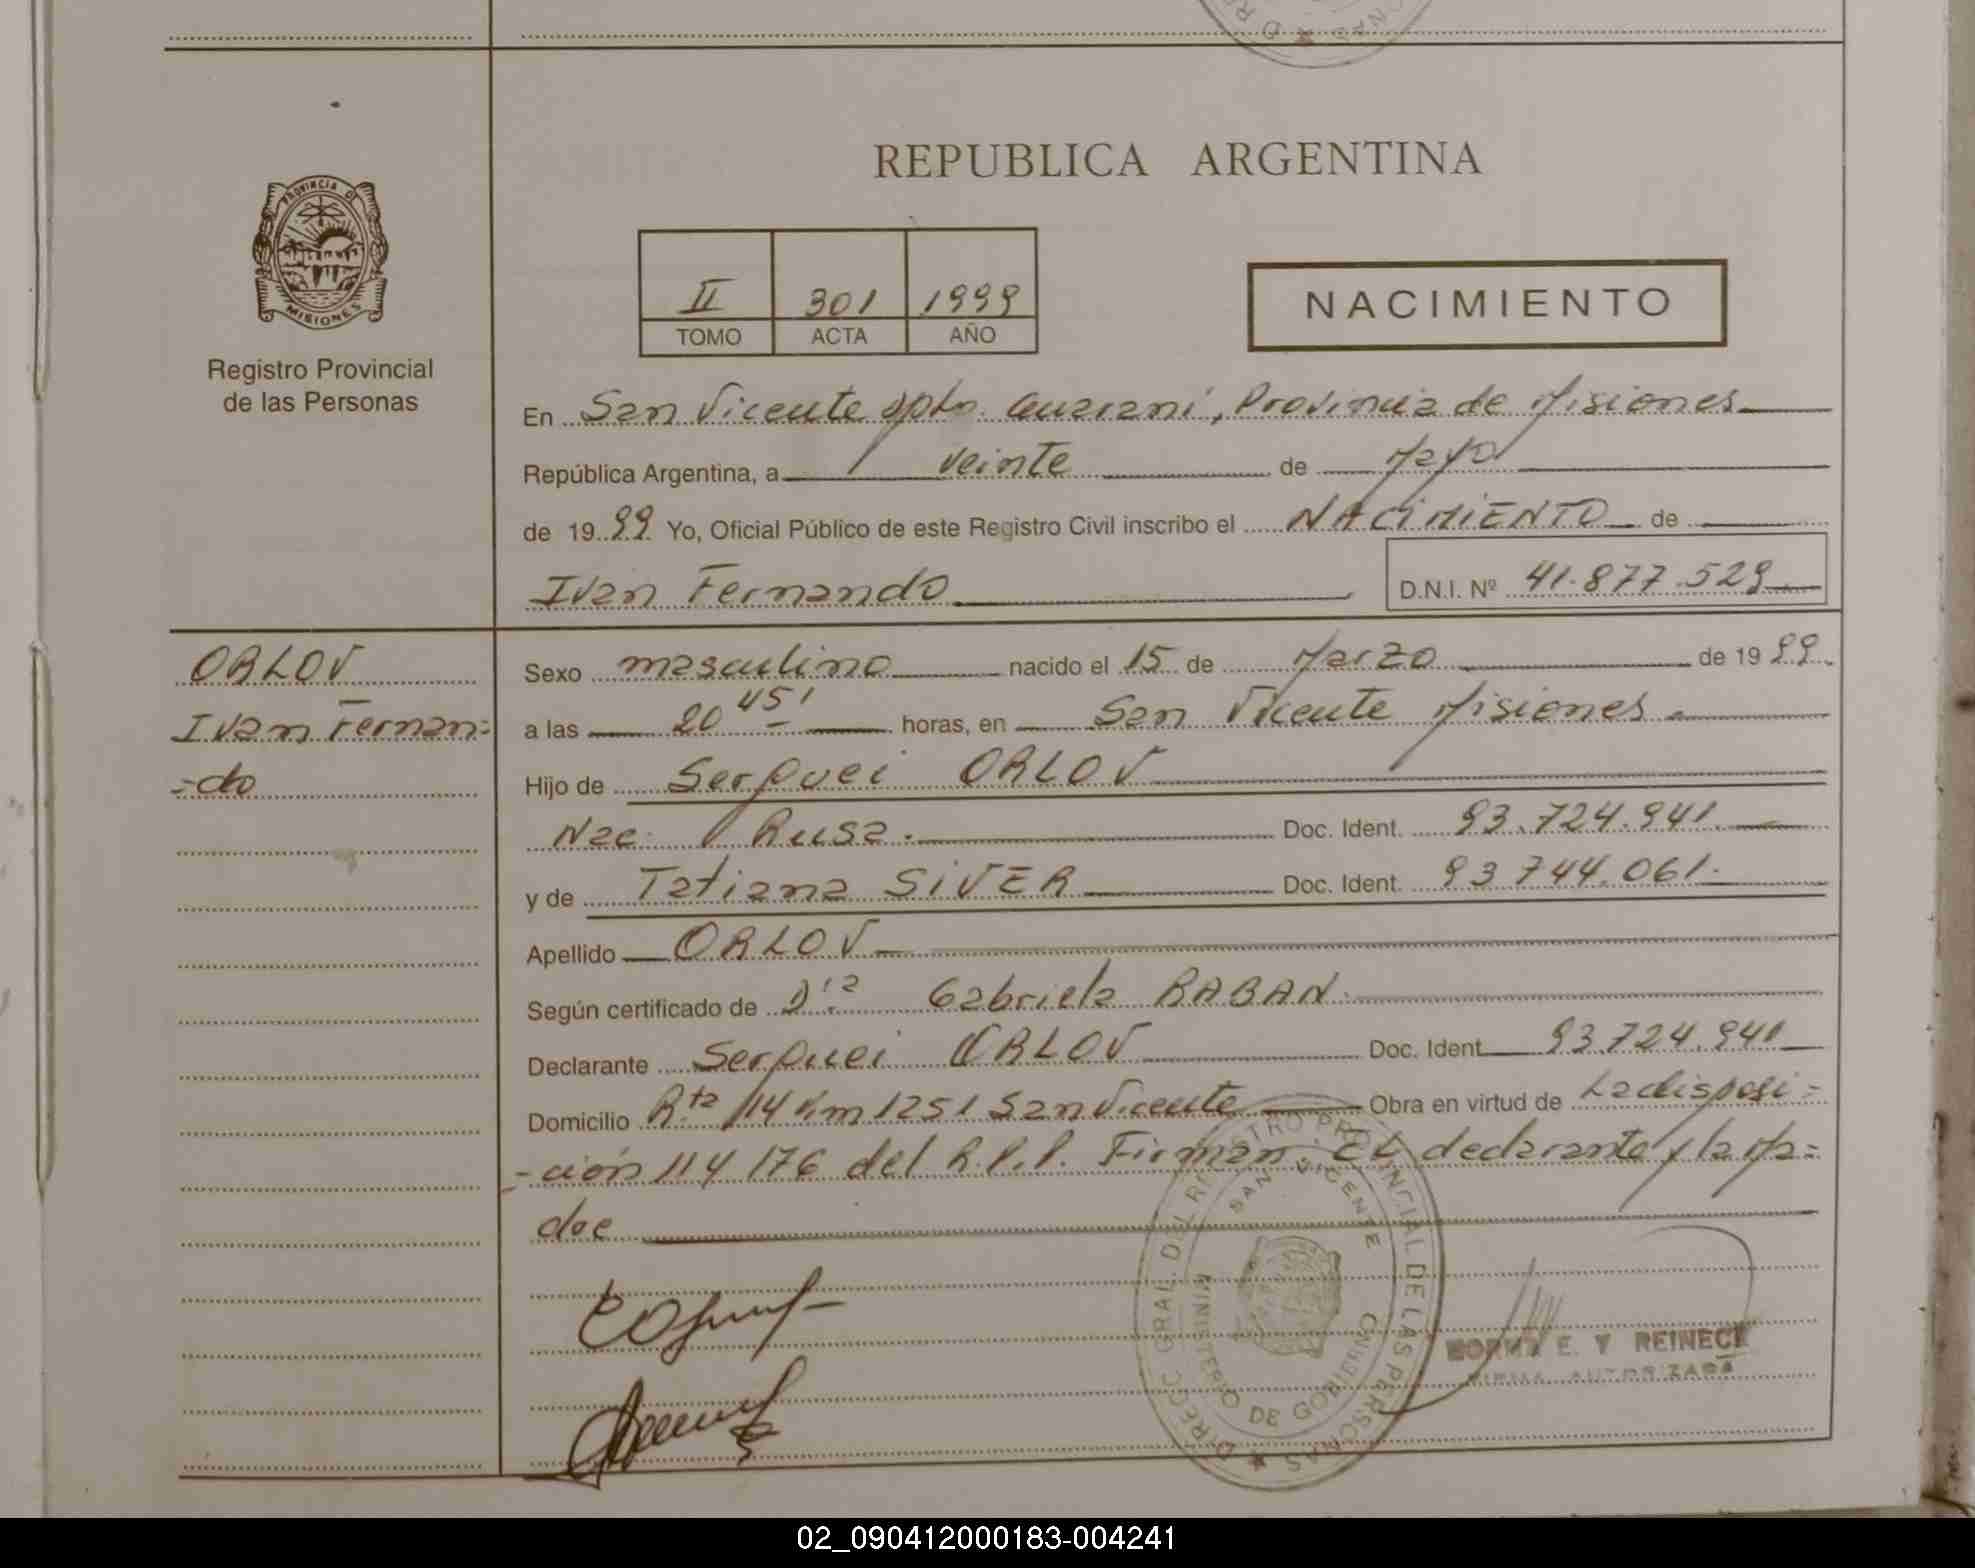 REPUBLICA ARGENTINA
PROVINCIA DE
MISIONES
Registro Provincial
de las Personas
II 301 1999
TOMO ACTA AÑO
NACIMIENTO
En San Vicente dpto. Guarani, Provincia de Misiones
República Argentina, a veinte de Mayo
de 1999 Yo, Oficial Público de este Registro Civil inscribo el NACIMIENTO de
Ivan Fernando D.N.I. Nº 41.877.529
ORLOV
Ivan Fernan=
=do
Sexo masculino nacido el 15 de Marzo de 1999
a las 20 45' horas, en San Vicente Misiones
Hijo de Serguei ORLOV
Nac. Rusa. Doc. Ident. 93.724.941
y de Tatiana SiVER Doc. Ident. 93.744.061.
Apellido ORLOV
Según certificado de Dra Gabriela RABAN
Declarante Serguei ORLOV Doc. Ident. 93.724.941
Domicilio Rta 14 Km 1251 San Vicente Obra en virtud de La disposi=
=ción 114/76 del R.P.P. Firman: EL declarante y la Ma=
dre
DIRECC. GRAL. DEL REGISTRO PROVINCIAL DE LAS PERSONAS
SAN VICENTE
MINISTERIO DE GOBIERNO
NORMA E. Y REINECK
FIRMA AUTORIZADA
02_090412000183-004241